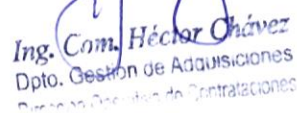 Ing. Com. Héctor Chávez
Dpto. Gestión de Adquisiciones
de Contrataciones